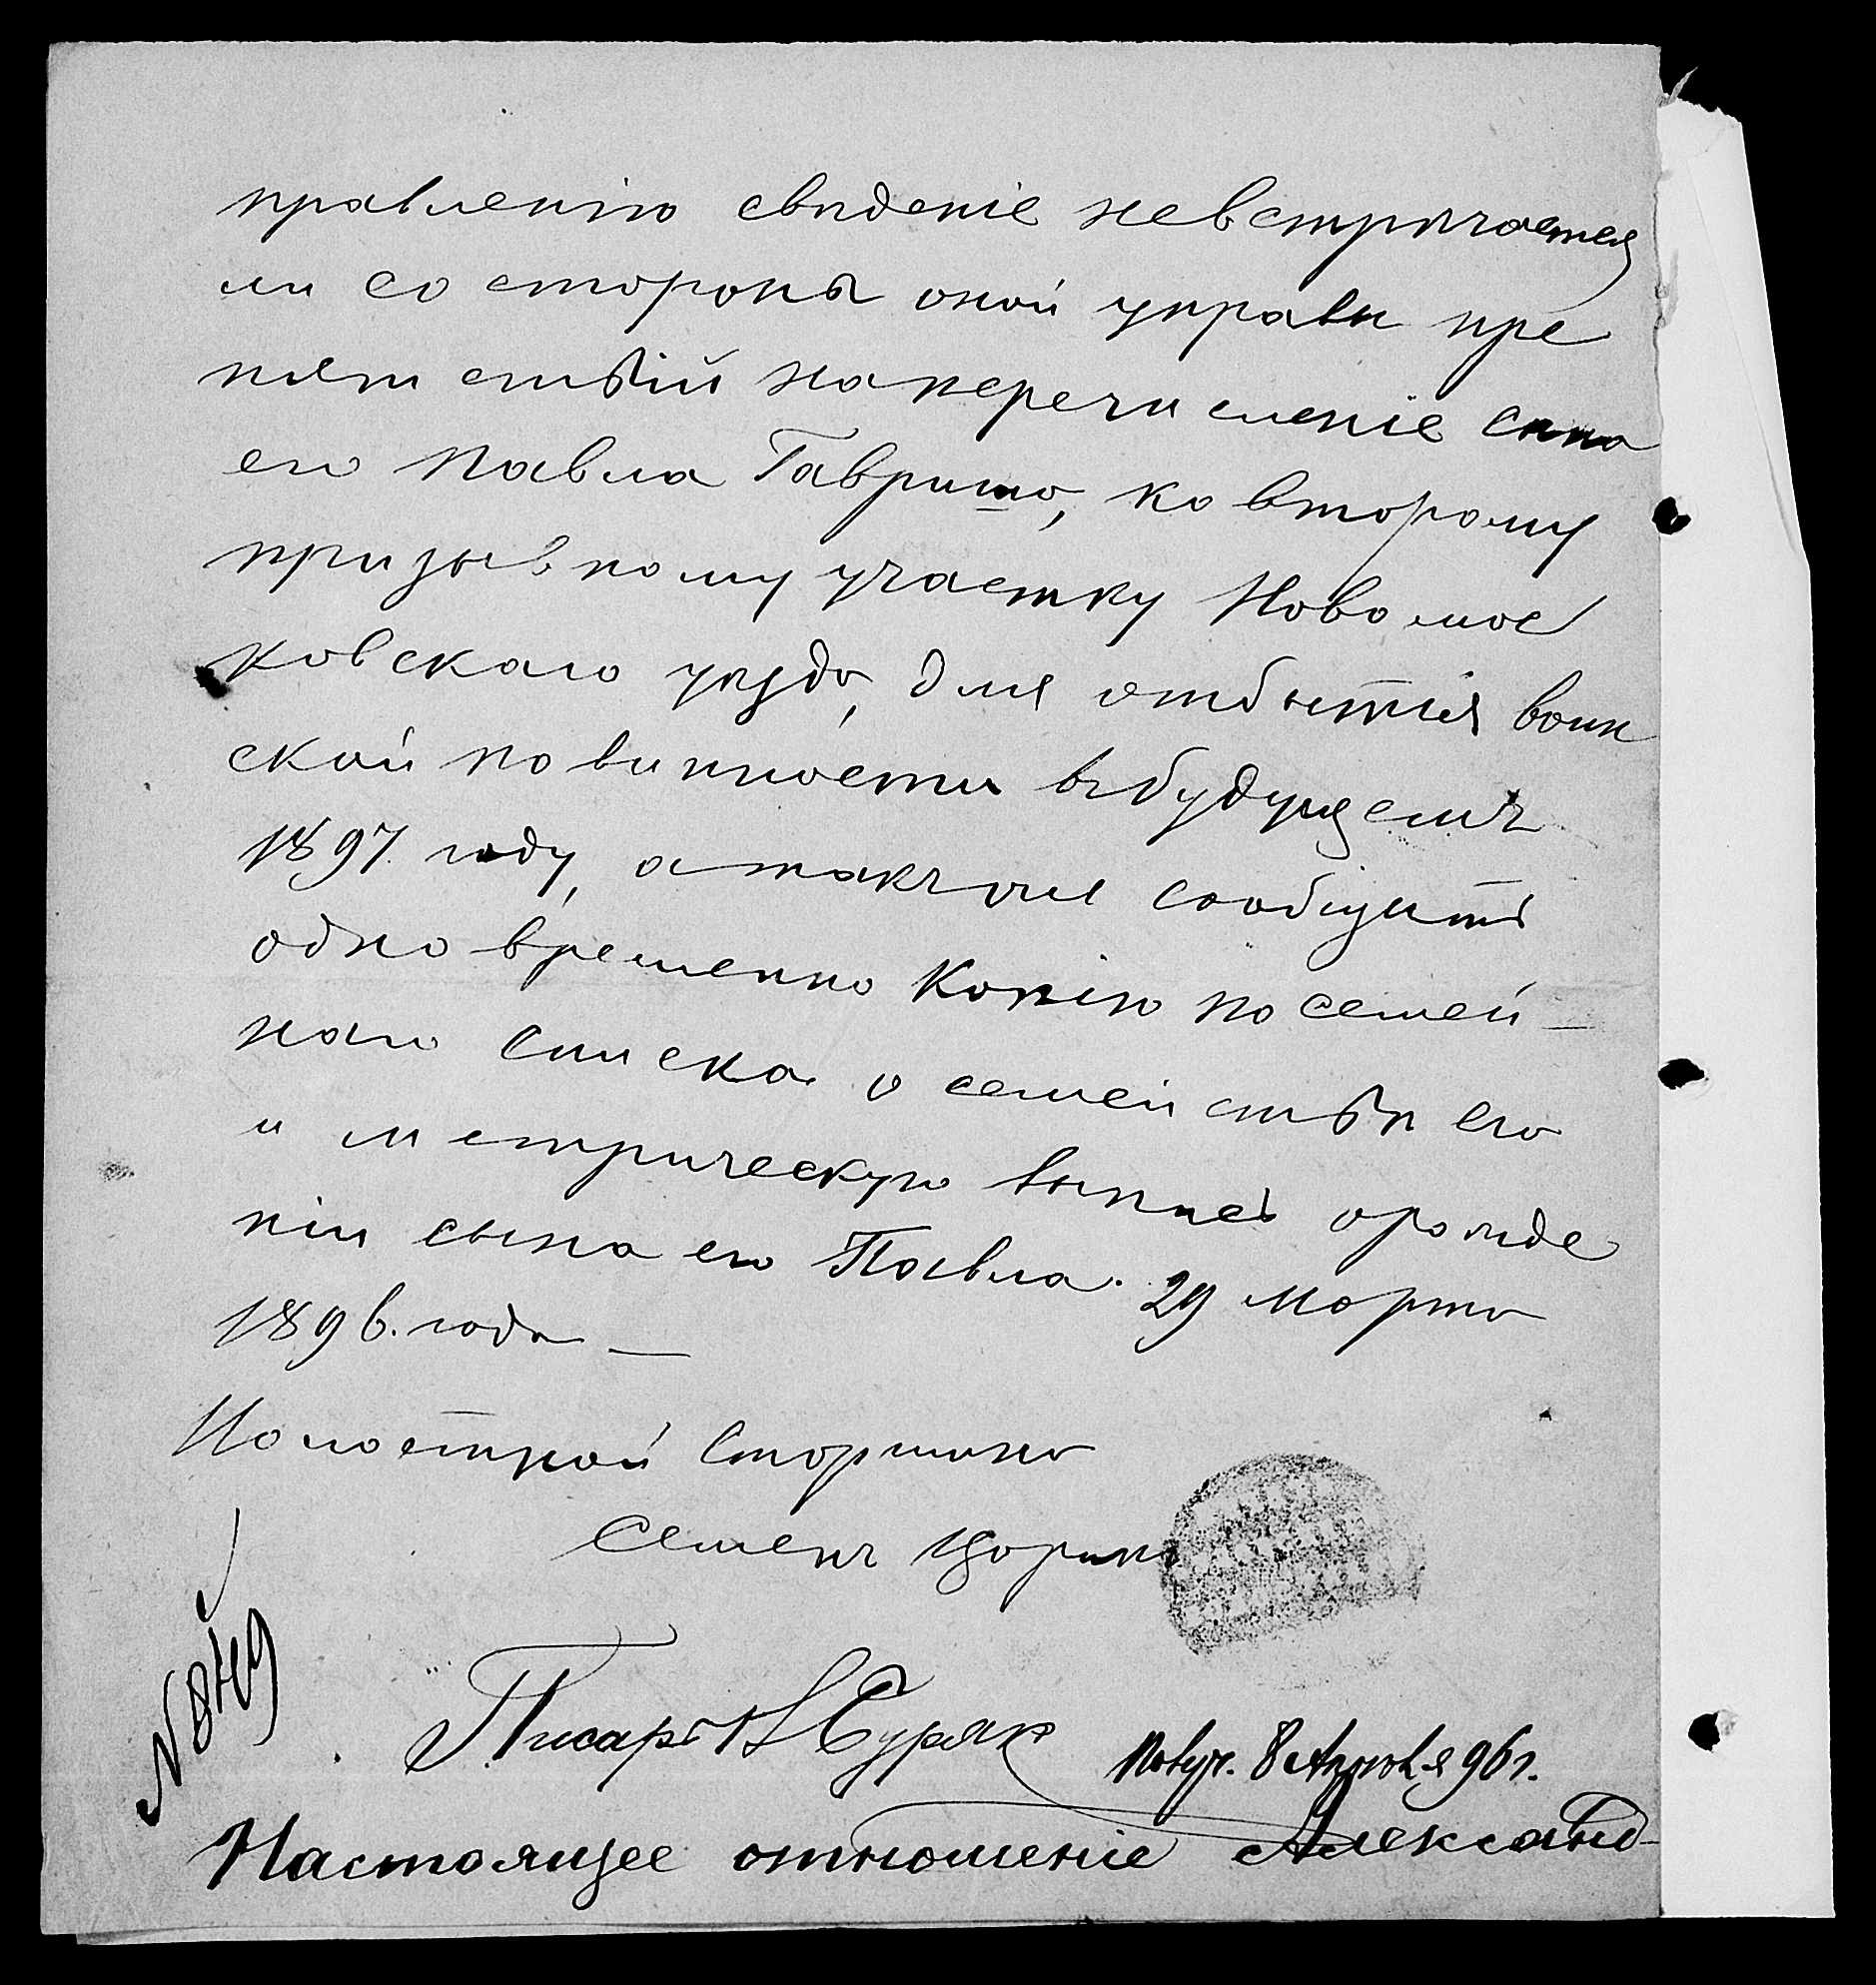 правленію сведеніе невстрѣчается
ли со стороны оной управи пре
пятствій наперечисленіе сына
его Павла Гавриша, ко второму
призывному участку Новомос
ковскаго уѣзда, для отбытія воин
ской повинности въбудущемъ
1897 году, атакъже сообщить
одновременно копію посемей-
наго списка о семействѣ его
и метрическую выпись орожде
ніи сына его Павла. 29 Марта
1896. года —
Волостной Старшина
Семенъ
Писарь
Получ. 8 Апрѣля 96 г.
Настоящее отношеніе Александ-